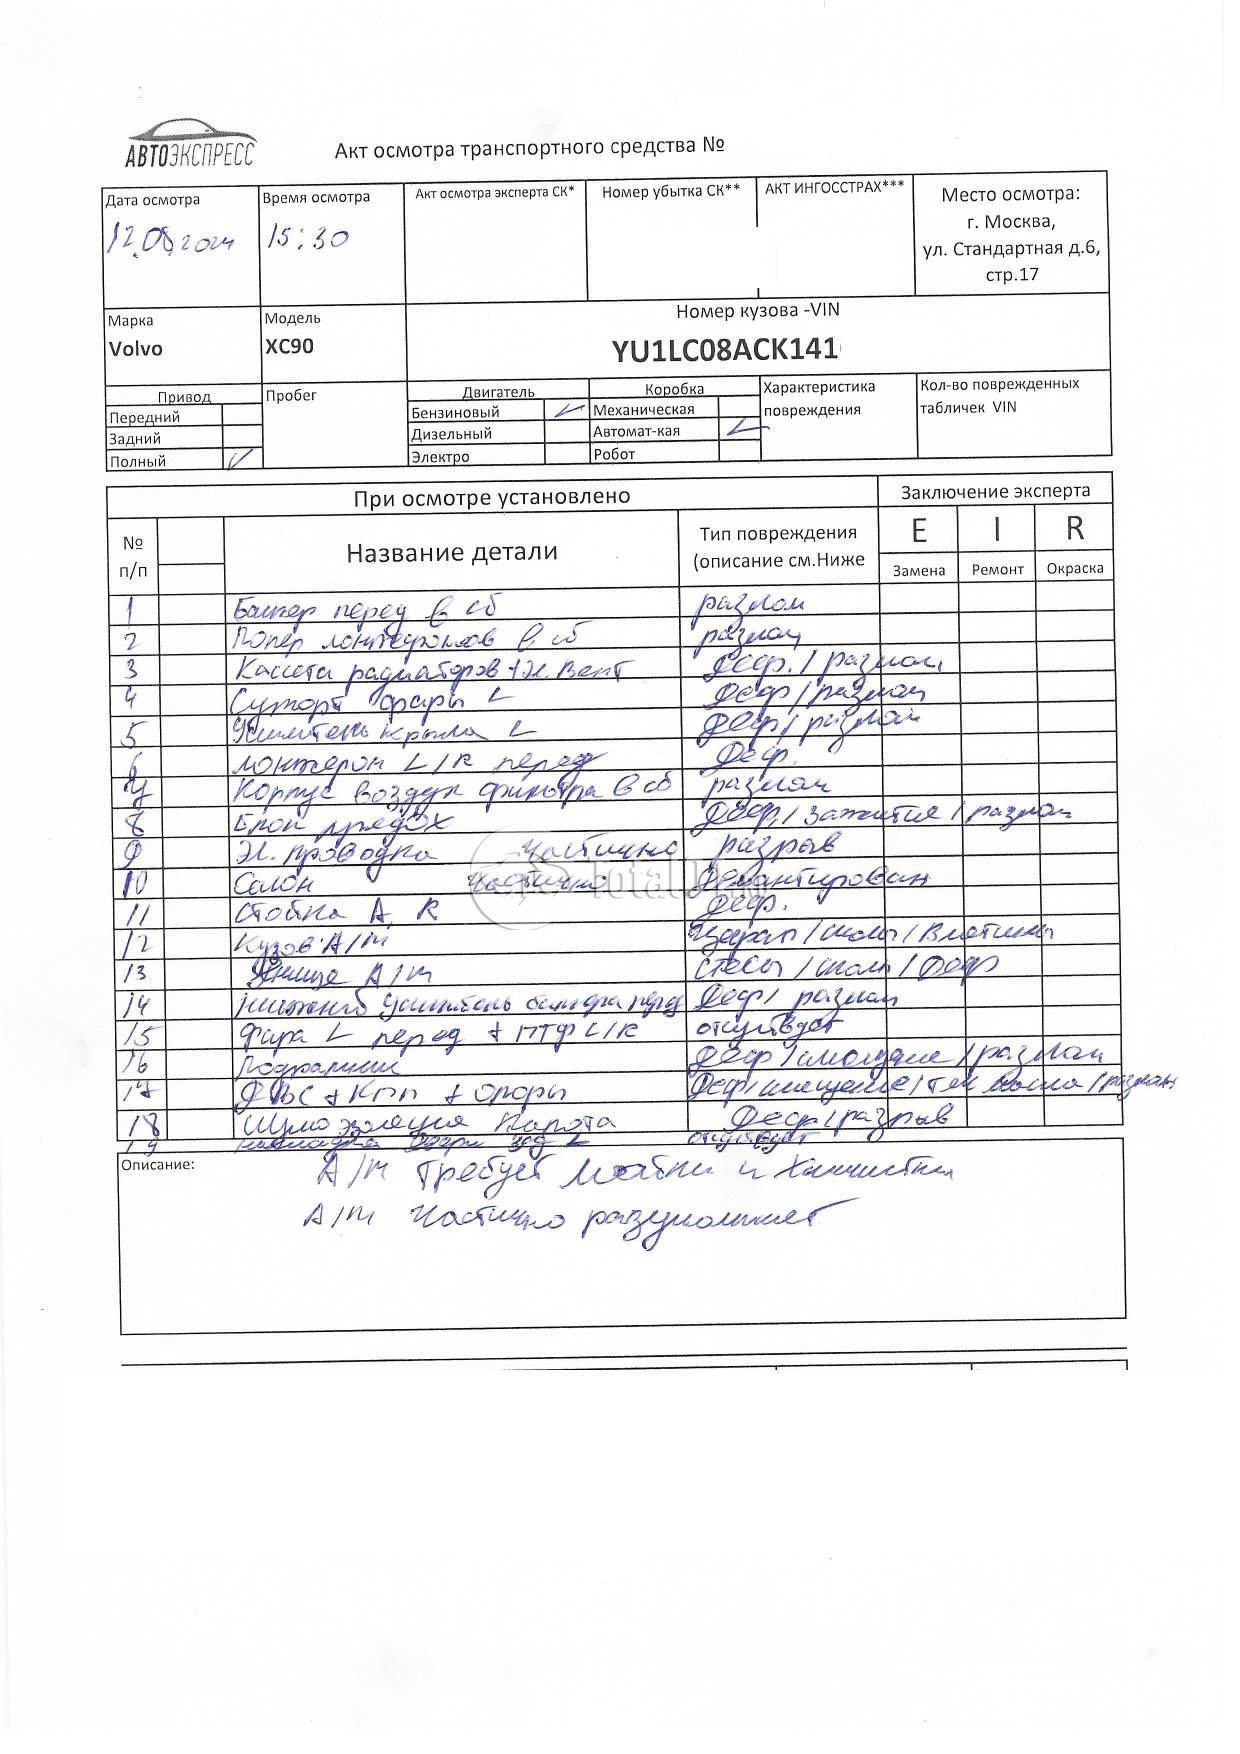 АВТОЭКСПРЕСС
Акт осмотра транспортного средства №
Дата осмотра
Время осмотра
Акт осмотра эксперта СК*
Номер убытка СК**
АКТ ИНГОССТРАХ***
Место осмотра:
г. Москва,
ул. Стандартная д.6,
стр.17
15:30
Марка
Volvo
Модель
XC90
Номер кузова -VIN
YU1LC08ACK141
Привод
Передний
Задний
Полный
Пробег
Двигатель
Бензиновый
Дизельный
Электро
Коробка
Механическая
Автомат-кая
Робот
Характеристика
повреждения
Кол-во поврежденных
табличек VIN
При осмотре установлено
Заключение эксперта
№
п/п
Название детали
Тип повреждения
(описание см.Ниже
E I R
Замена Ремонт Окраска
1 Бампер перед в сб разлом
2 Попер лонжеронов в сб разлом
3 Кассета радиаторов + эл. Вент Деф. / разлом
4 Суппорт фары L Деф / разлом
5 Усилитель крыла L Деф / разлом
6 лонжерон L/R перед Деф.
7 Корпус воздух фильтра в сб разлом
8 Блок предох Деф. / Зажится / разлом
9 Эл. проводка частично разрыв
10 Салон частично Демонтирован
11 Стойка А R Деф.
12 Кузов А/т Царап / сколы / Вмятины
13 Днище А/т стесы / сколы / Деф
14 нижний усилитель бампера перед Деф / разлом
15 Фара L перед + ПТФ L/R отсутствует
16 Подрамник Деф / смещение / разлом
17 ДВС + Кпп + Опоры Деф / смещение / Теч масла / разлом
18 Шумоизоляция Капота Деф / разрыв
19 накладка двери зад L отсутствует
Описание:
А/т требует Мойки и Химчистки
А/т Частично разукомплект